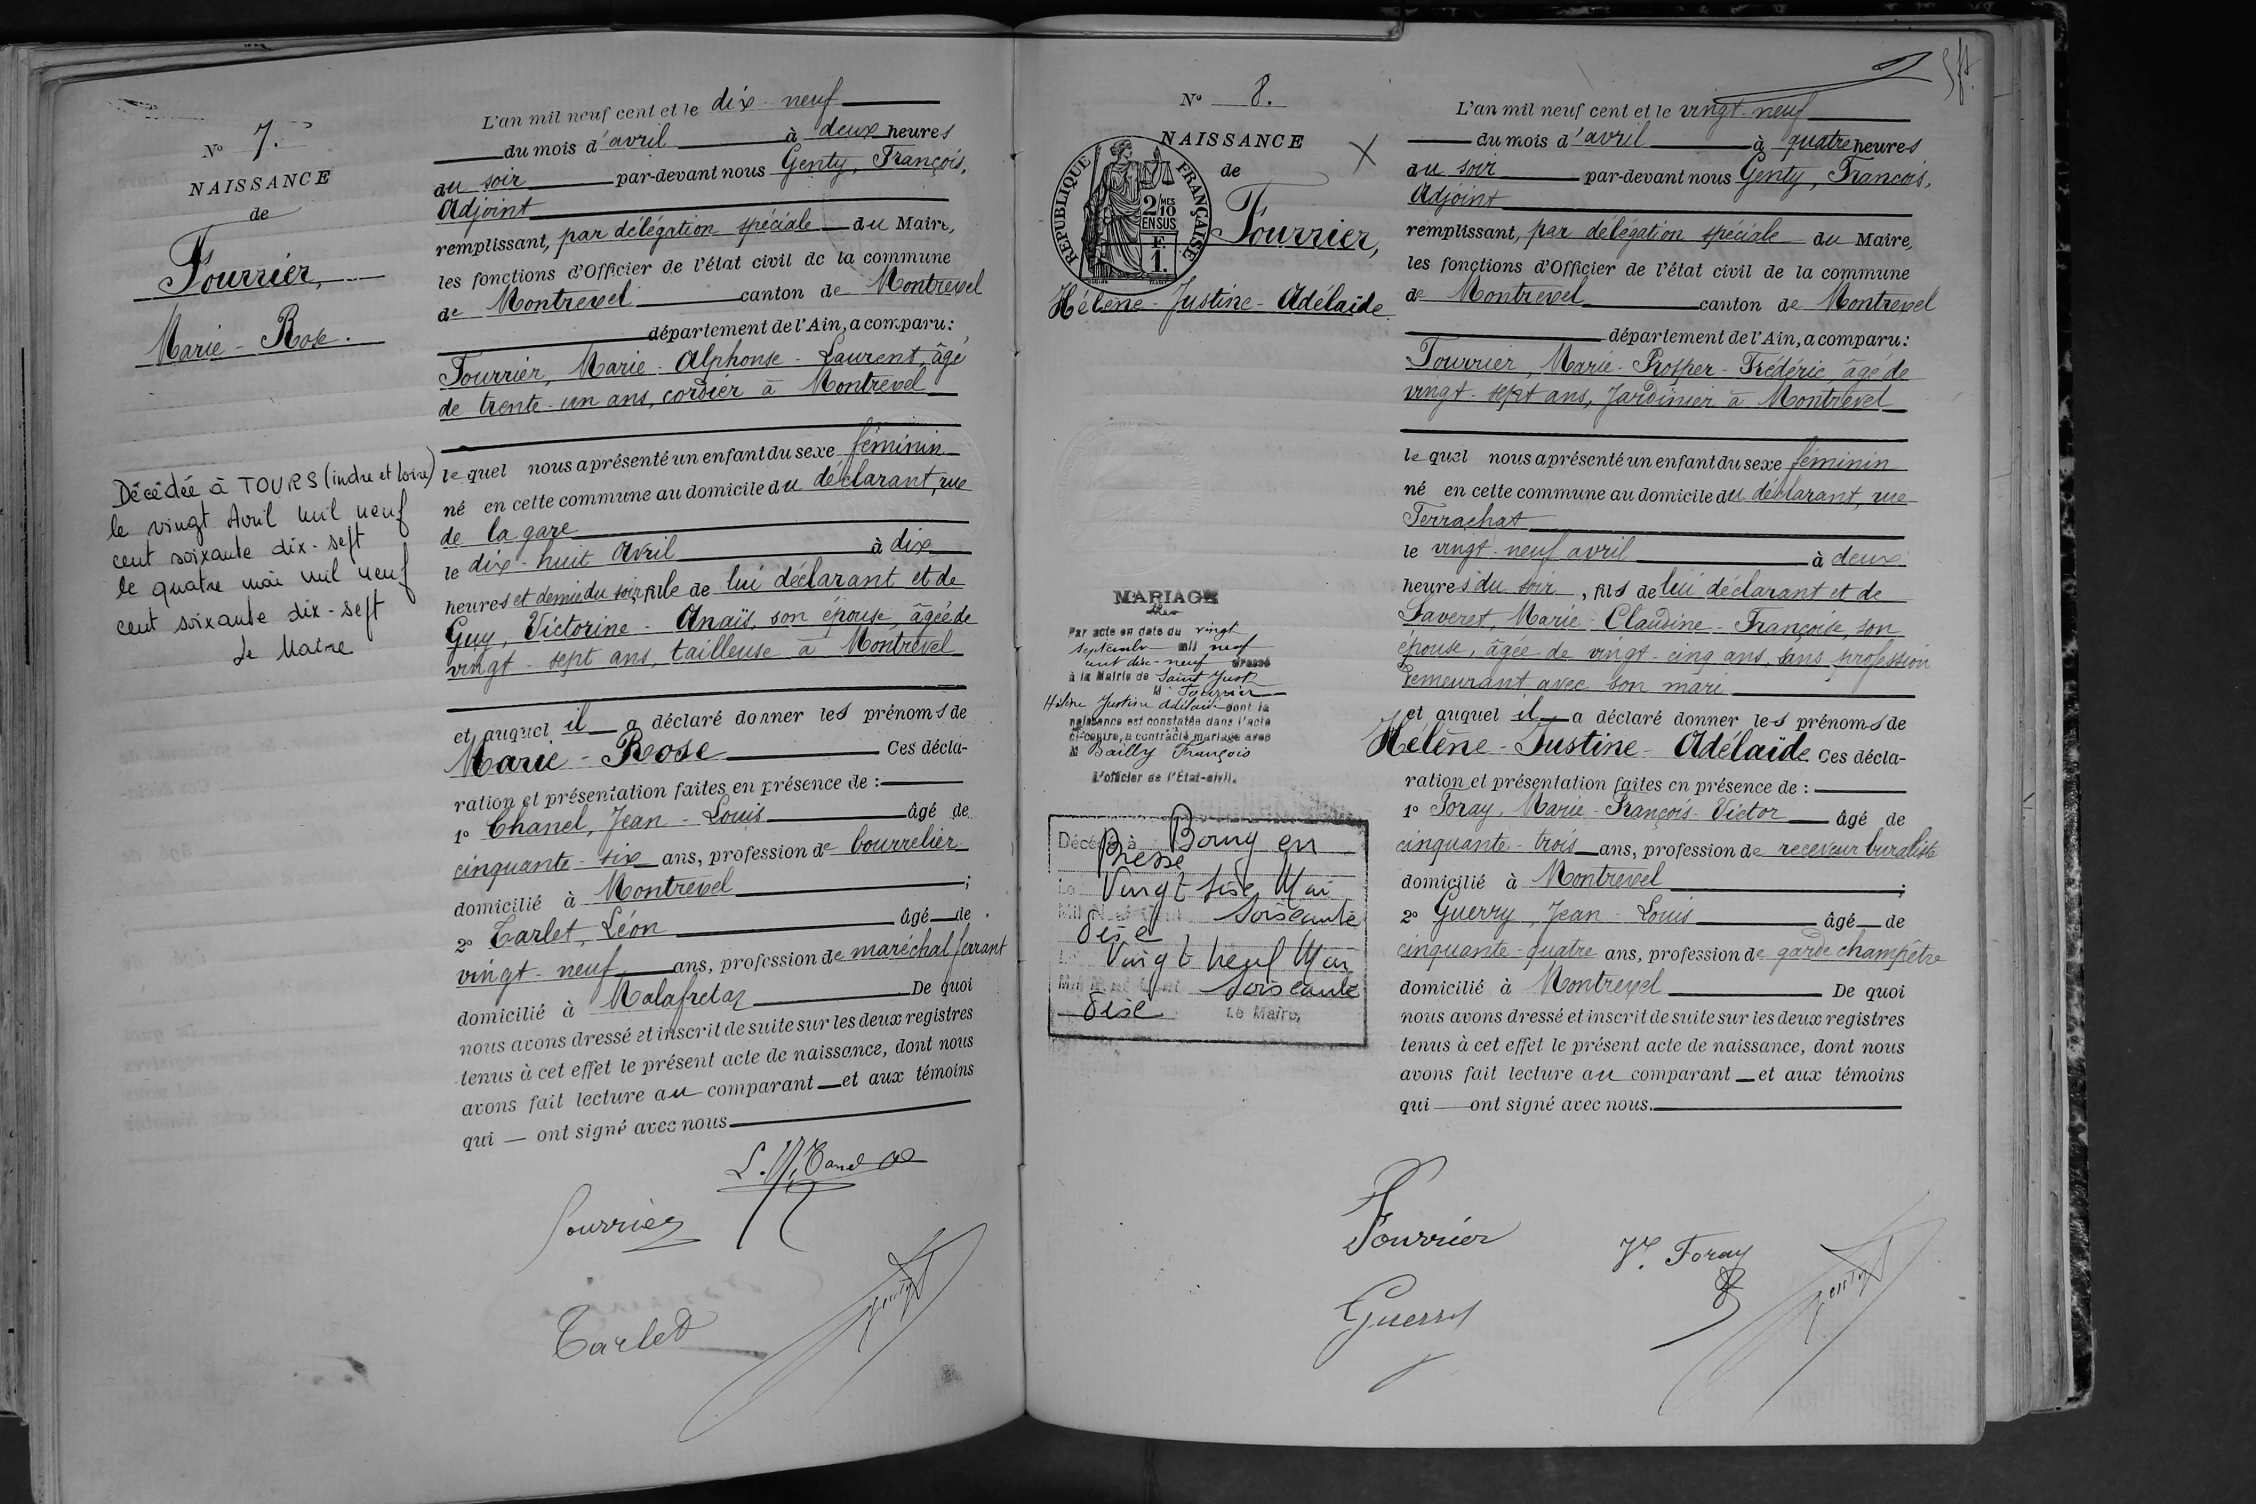 N° 7.
NAISSANCE
de
Fourrier,
Marie - Rose.
Décédée à TOURS (indre et loire)
le vingt Avril mil neuf
cent soixante dix-sept
le quatre mai mil neuf
cent soixante dix-sept
Le Maire
L'an mil neuf cent et le dix-neuf
du mois d'avril à deux heures
du soir par-devant nous Genty, François,
Adjoint
remplissant, par délégation spéciale du Maire,
les fonctions d'Officier de l'état civil de la commune
de Montrevel canton de Montrevel
département de l'Ain, a comparu:
Fourrier, Marie - Alphonse - Laurent, âgé
de trente-un ans, cordier à Montrevel
lequel nous a présenté un enfant du sexe féminin
né en cette commune au domicile du déclarant, rue
de la gare
le dix-huit avril à dix
heures et demie du soir, fille de lui déclarant et de
Guy, Victorine - Anaïs, son épouse, âgée de
vingt-sept ans, tailleuse à Montrevel
et auquel il a déclaré donner les prénoms de
Marie - Rose Ces décla-
ration et présentation faites en présence de :
1° Chanel, Jean - Louis âgé de
cinquante-six ans, profession de bourrelier
domicilié à Montrevel ;
2° Carlet, Léon âgé de
vingt-neuf ans, profession de maréchal ferrant
domicilié à Malafretaz De quoi
nous avons dressé et inscrit de suite sur les deux registres
tenus à cet effet le présent acte de naissance, dont nous
avons fait lecture au comparant et aux témoins
qui ont signé avec nous
Fourrier
Carlet
Genty
N° 8.
NAISSANCE
de
RÉPUBLIQUE FRANÇAISE
2 MES
10
EN SUS
F.
1.
Fourrier,
Hélène - Justine - Adélaïde.
MARIAGE
Par acte en date du vingt
septembre mil neuf
cent dix-neuf dressé
à la Mairie de Saint Just
M Fourrier
Hélène Justine Adélaïde dont la
naissance est constatée dans l'acte
ci-contre, a contracté mariage avec
M Bailly François
L'officier de l'État-civil.
Décédé à Bourg en
Bresse
Le Vingt sise Mai
Mil Neuf Cent soiscante
disc
Le Vingt neuf Mai
Mil Neuf Cent soiscante
disc Le Maire,
L'an mil neuf cent et le vingt-neuf
du mois d'avril à quatre heures
du soir par-devant nous Genty, François,
Adjoint
remplissant, par délégation spéciale du Maire,
les fonctions d'Officier de l'état civil de la commune
de Montrevel canton de Montrevel
département de l'Ain, a comparu:
Fourrier, Marie - Prosper - Frédéric, âgé de
vingt-sept ans, Jardinier à Montrevel
lequel nous a présenté un enfant du sexe féminin
né en cette commune au domicile du déclarant, rue
Terrachat
le vingt-neuf avril à deux
heures du soir, fils de lui déclarant et de
Laveret, Marie - Claudine - Françoise, son
épouse, âgée de vingt-cinq ans, sans profession
demeurant avec son mari
et auquel il a déclaré donner les prénoms de
Hélène - Justine - Adélaïde. Ces décla-
ration et présentation faites en présence de :
1° Foray, Marie - François - Victor âgé de
cinquante-trois ans, profession de receveur buraliste
domicilié à Montrevel ;
2° Guerry, Jean - Louis âgé de
cinquante-quatre ans, profession de garde champêtre
domicilié à Montrevel De quoi
nous avons dressé et inscrit de suite sur les deux registres
tenus à cet effet le présent acte de naissance, dont nous
avons fait lecture au comparant et aux témoins
qui ont signé avec nous.
Fourrier
V. Foray
Guerry
Genty